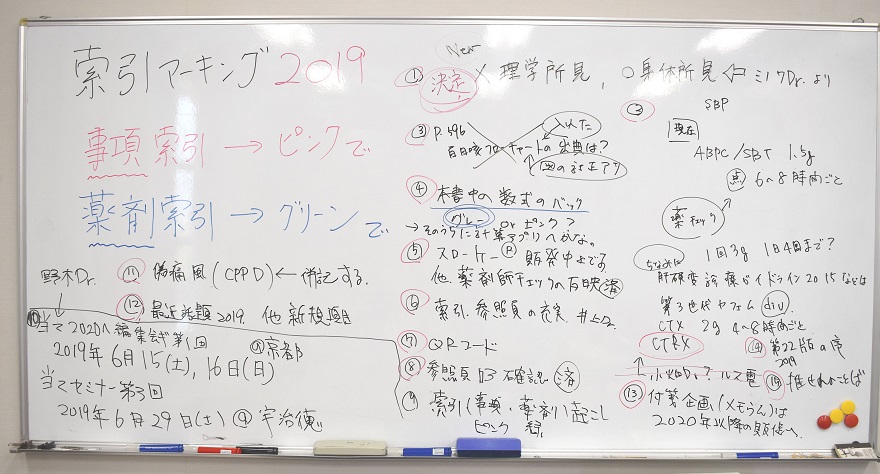 索引マーキング2019
事項索引→ピンクで
薬剤索引→グリーンで
野木Dr.
⑪ 偽痛風(CPPD)←併記する。
⑫ 最近話題2019. 他新規題目
⑩ 当マニ2020へ編集会議第1回
2019年6月15(土), 16日(日)
京都
当マニセミナー第3回
2019年6月29日(土)
New
① 決定 × 理学所見, ○身体所見
Dr.より
③ P.596
百日咳フローチャートの出典は?
入れた
図の訂正アリ
④ 本書中の数式のバック
グレー or ピンク?
⑤ スローケー 販売中止です。
他薬剤師チェックの反映 済
⑥ 索引. 参照頁の充実 井上Dr.
⑦ QRコード
⑧ 参照頁 確認 済
⑨ 索引(事項・薬剤)起こし
ピンク 緑
②
SBP
現在
ABPC/SBT 1.5g
点 6〜8時間ごと
薬チェック
ちなみに 1回3g 1日4回まで?
肝硬変診療ガイドライン2015などは
第3世代セフェム div
CTX 2g 4〜8時間ごと
CTRX
⑭ 第22版の序
2019
推せんのことば
⑬ 付箋企画(メモらん)は
2020年以降の販促へ